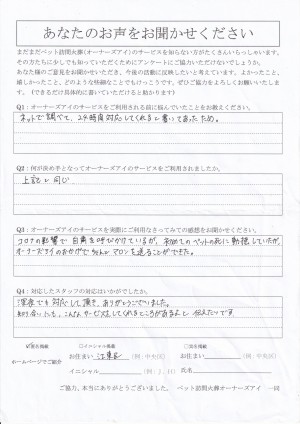 あなたのお声をお聞かせください
まだまだペット訪問火葬(オーナーズアイ)のサービスを知らない方がたくさんいらっしゃいます。
その方たちに少しでも知っていただくためにアンケートにご協力いただけないでしょうか。
あなた様のご意見をお聞かせいただき、今後の活動に反映したいと考えています。よかったこと、
嬉しかったこと、どのような些細なことでもけっこうです。ぜひご協力をよろしくお願いいたしま
す。(できるだけ具体的に書いていただけると助かります)
Q1：オーナーズアイのサービスをご利用される前に悩んでいたことをお教えください。
ネットで調べて、24時間対応してくれると書いてあったため。
Q2：何が決め手となってオーナーズアイのサービスをご利用されましたか。
上記と同じ
Q3：オーナーズアイのサービスを実際にご利用なさってみての感想をお聞かせください。
コロナの影響で自粛を呼びかけているが、初めてのペットの死に動揺していたが、
オーナーズアイのおかげでちゃんとマロンを送ることができた。
Q4：対応したスタッフの対応はいかがでしたか。
深夜でも対応して頂き、ありがとうございました。
知り合いにも、こんなサービスをしてくれるところがあるよと伝えたいです。
匿名掲載 イニシャル掲載 実名掲載
ホームページでご紹介
お住まい 江東区 (例：中央区) お住まい (例：中央区)
イニシャル (例：J．H) 氏名
ご協力、本当にありがとうございました。 ペット訪問火葬オーナーズアイ 一同